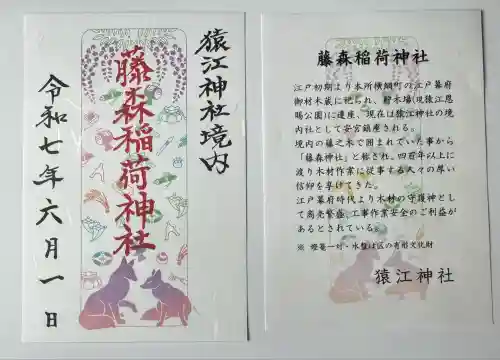 猿江神社境内
藤森稲荷神社
令和七年六月一日
藤森稲荷神社
江戸初期より本所横網町の江戸幕府
御材木蔵に祀られ、貯木場(現猿江恩
賜公園)に遷座、現在は猿江神社の境
内社として安宮鎮座される。
境内の藤之木で囲まれていた事から
「藤森神社」と称され、四百年以上に
渡り木材作業に従事する人々の厚い
信仰を享けてきた。
江戸幕府時代より木材の守護神とし
て商売繁盛、工事作業安全のご利益が
あるとされている。
※ 燈篭一対・水盤は区の有形文化財
猿江神社